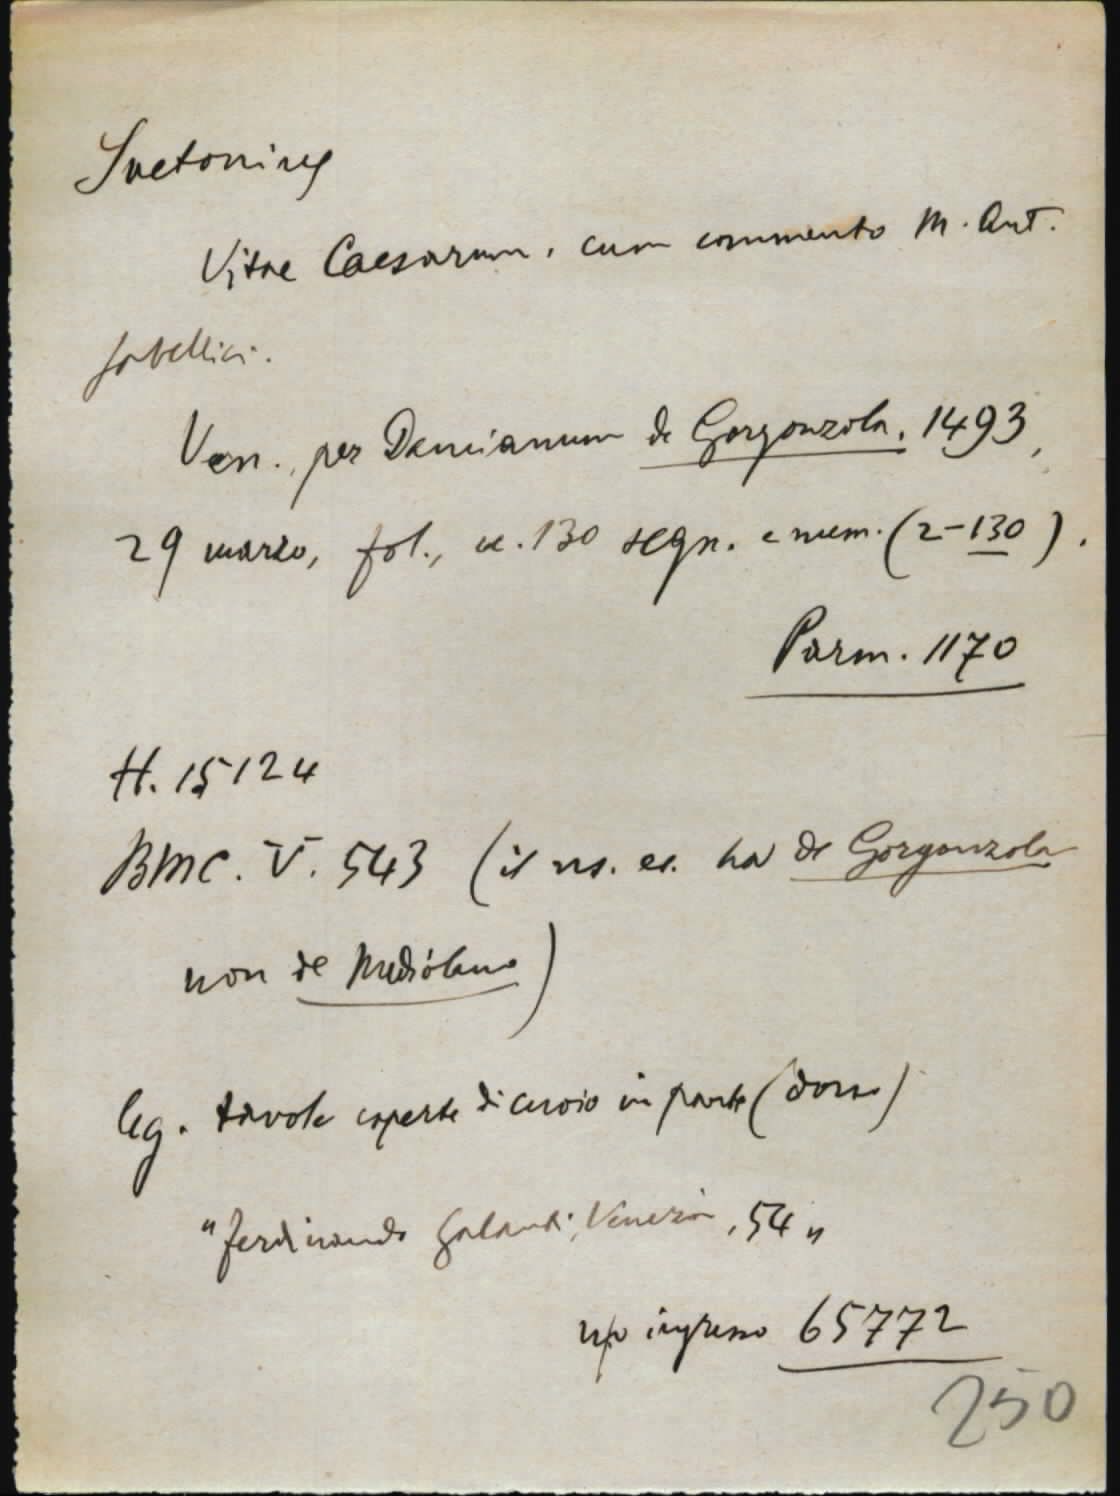 Suetonius
Vitae Caesarum, cum commento M. Ant.
Sabellici.
Ven., per Damianum de Gorgonzola, 1493,
29 marzo, fol., cc. 130 segn. e num. (2-130).
Parm. 1170
H. 15124
BMC. V. 543 (il ns. es. ha de Gorgonzola
non de Mediolano)
leg. tavole coperte di cuoio in parte (dorso)
"Ferdinando Galanti, Venezia, 54"
ingresso 65772
250